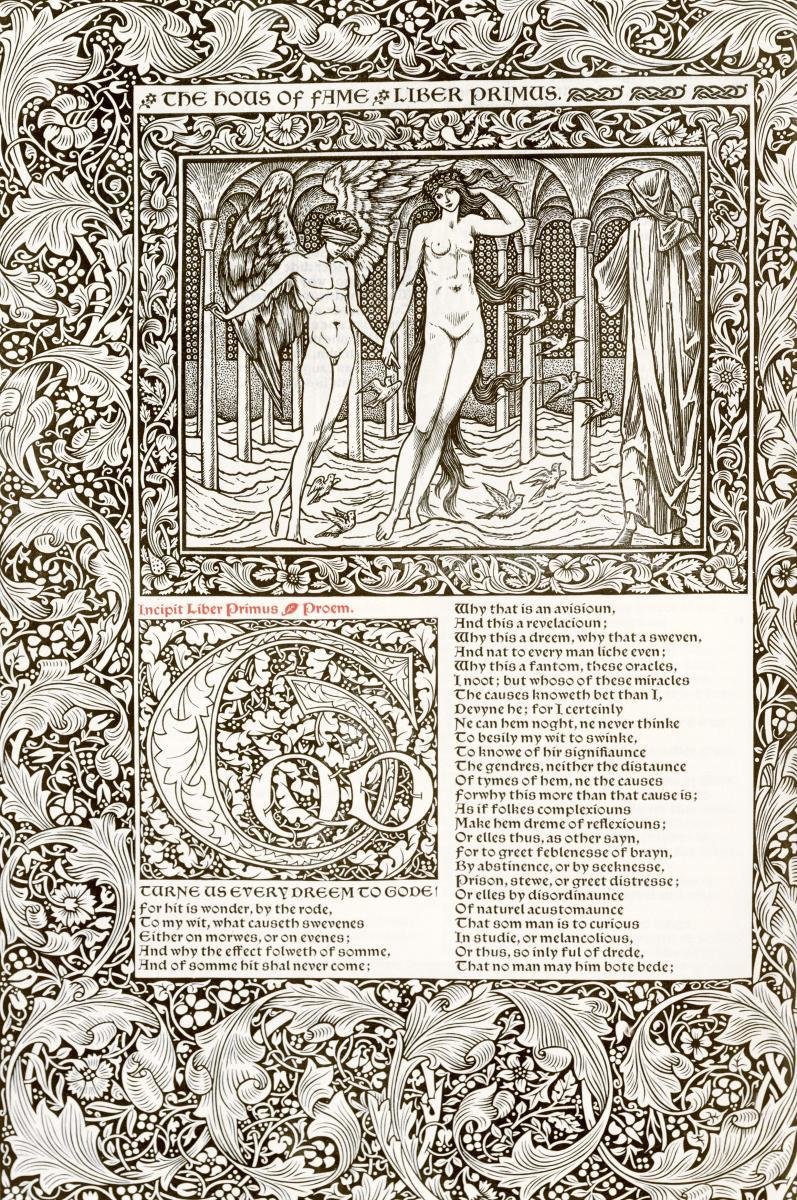 THE HOUS OF FAME LIBER PRIMUS.
Incipit Liber Primus Proem.
GOD
TURNE US EVERY DREEM TO GODE!
For hit is wonder, by the rode,
To my wit, what causeth swevenes
Either on morwes, or on evenes;
And why the effect folweth of somme,
And of somme hit shal never come;
Why that is an avisioun,
And this a revelacioun;
Why this a dreem, why that a sweven,
And nat to every man liche even;
Why this a fantom, these oracles,
I noot; but whoso of these miracles
The causes knoweth bet than I,
Devyne he; for I certeinly
Ne can hem noght, ne never thinke
To besily my wit to swinke,
To knowe of hir signifiaunce
The gendres, neither the distaunce
Of tymes of hem, ne the causes
Forwhy this more than that cause is;
As if folkes complexiouns
Make hem dreme of reflexiouns;
Or elles thus, as other sayn,
For to greet feblenesse of brayn,
By abstinence, or by seeknesse,
Prison, stewe, or greet distresse;
Or elles by disordinaunce
Of naturel acustomaunce
That som man is to curious
In studie, or melancolious,
Or thus, so inly ful of drede,
That no man may him bote bede;